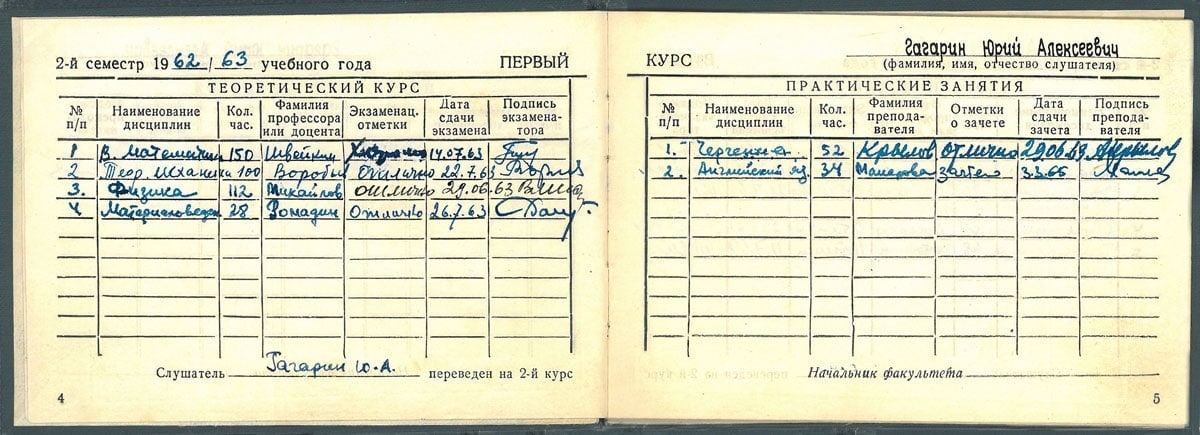 2-й семестр 1962/63 учебного года ПЕРВЫЙ
ТЕОРЕТИЧЕСКИЙ КУРС
№ п/п Наименование дисциплин Кол. час. Фамилия профессора или доцента Экзаменац. отметки Дата сдачи экзамена Подпись экзамена-тора
1 В. Математика 150 Швейкин 14.07.63
2 Теор. механика 100 Воробьев отлично 22.7.63
3. Физика 112 Михайлов отлично 29.06.63
4 Материаловеден 28 Ромадин Отлично 26.7.63
Слушатель Гагарин Ю.А. переведен на 2-й курс
4
КУРС Гагарин Юрий Алексеевич
(фамилия, имя, отчество слушателя)
ПРАКТИЧЕСКИЕ ЗАНЯТИЯ
№ п/п Наименование дисциплин Кол. час. Фамилия препода-вателя Отметки о зачете Дата сдачи зачета Подпись препода-вателя
1. Черчение 52 Крылов отлично 29.06.63 Крылов
2. Английский яз. 34 зачтено
Начальник факультета
5